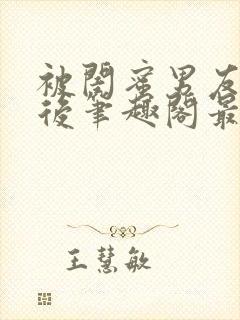 被閨蜜男友
後筆趣閣最
王慧敏